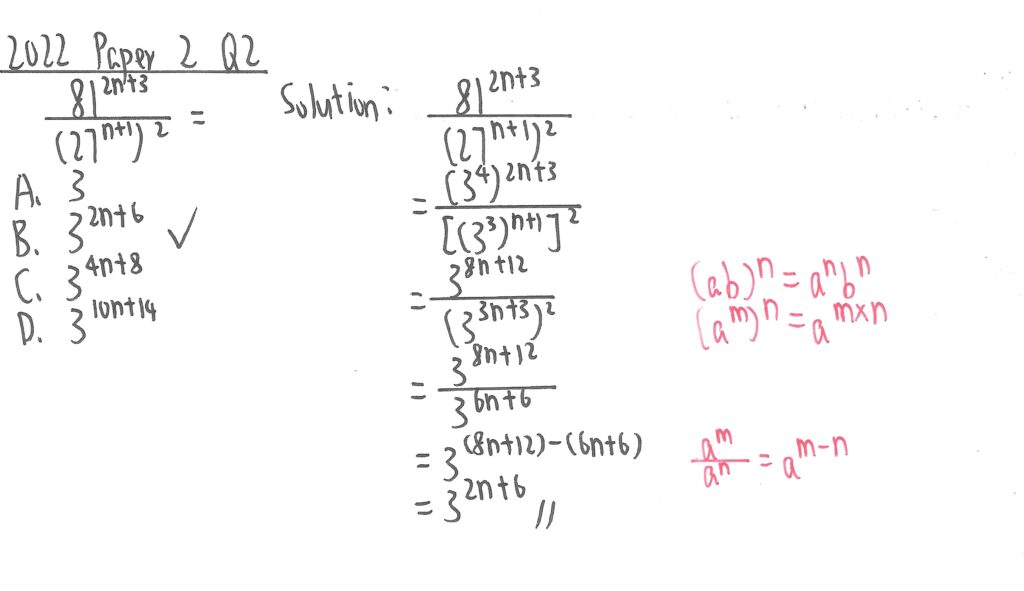 2022 Paper 2 Q2
81^(2n+3) / (27^(n+1))^2 =
A. 3
B. 3^(2n+6) ✓
C. 3^(4n+8)
D. 3^(10n+14)
Solution: 81^(2n+3) / (27^(n+1))^2
= (3^4)^(2n+3) / [(3^3)^(n+1)]^2
= 3^(8n+12) / (3^(3n+3))^2
(ab)^n = a^n b^n
(a^m)^n = a^(m×n)
= 3^(8n+12) / 3^(6n+6)
= 3^((8n+12)-(6n+6))
a^m / a^n = a^(m-n)
= 3^(2n+6) //